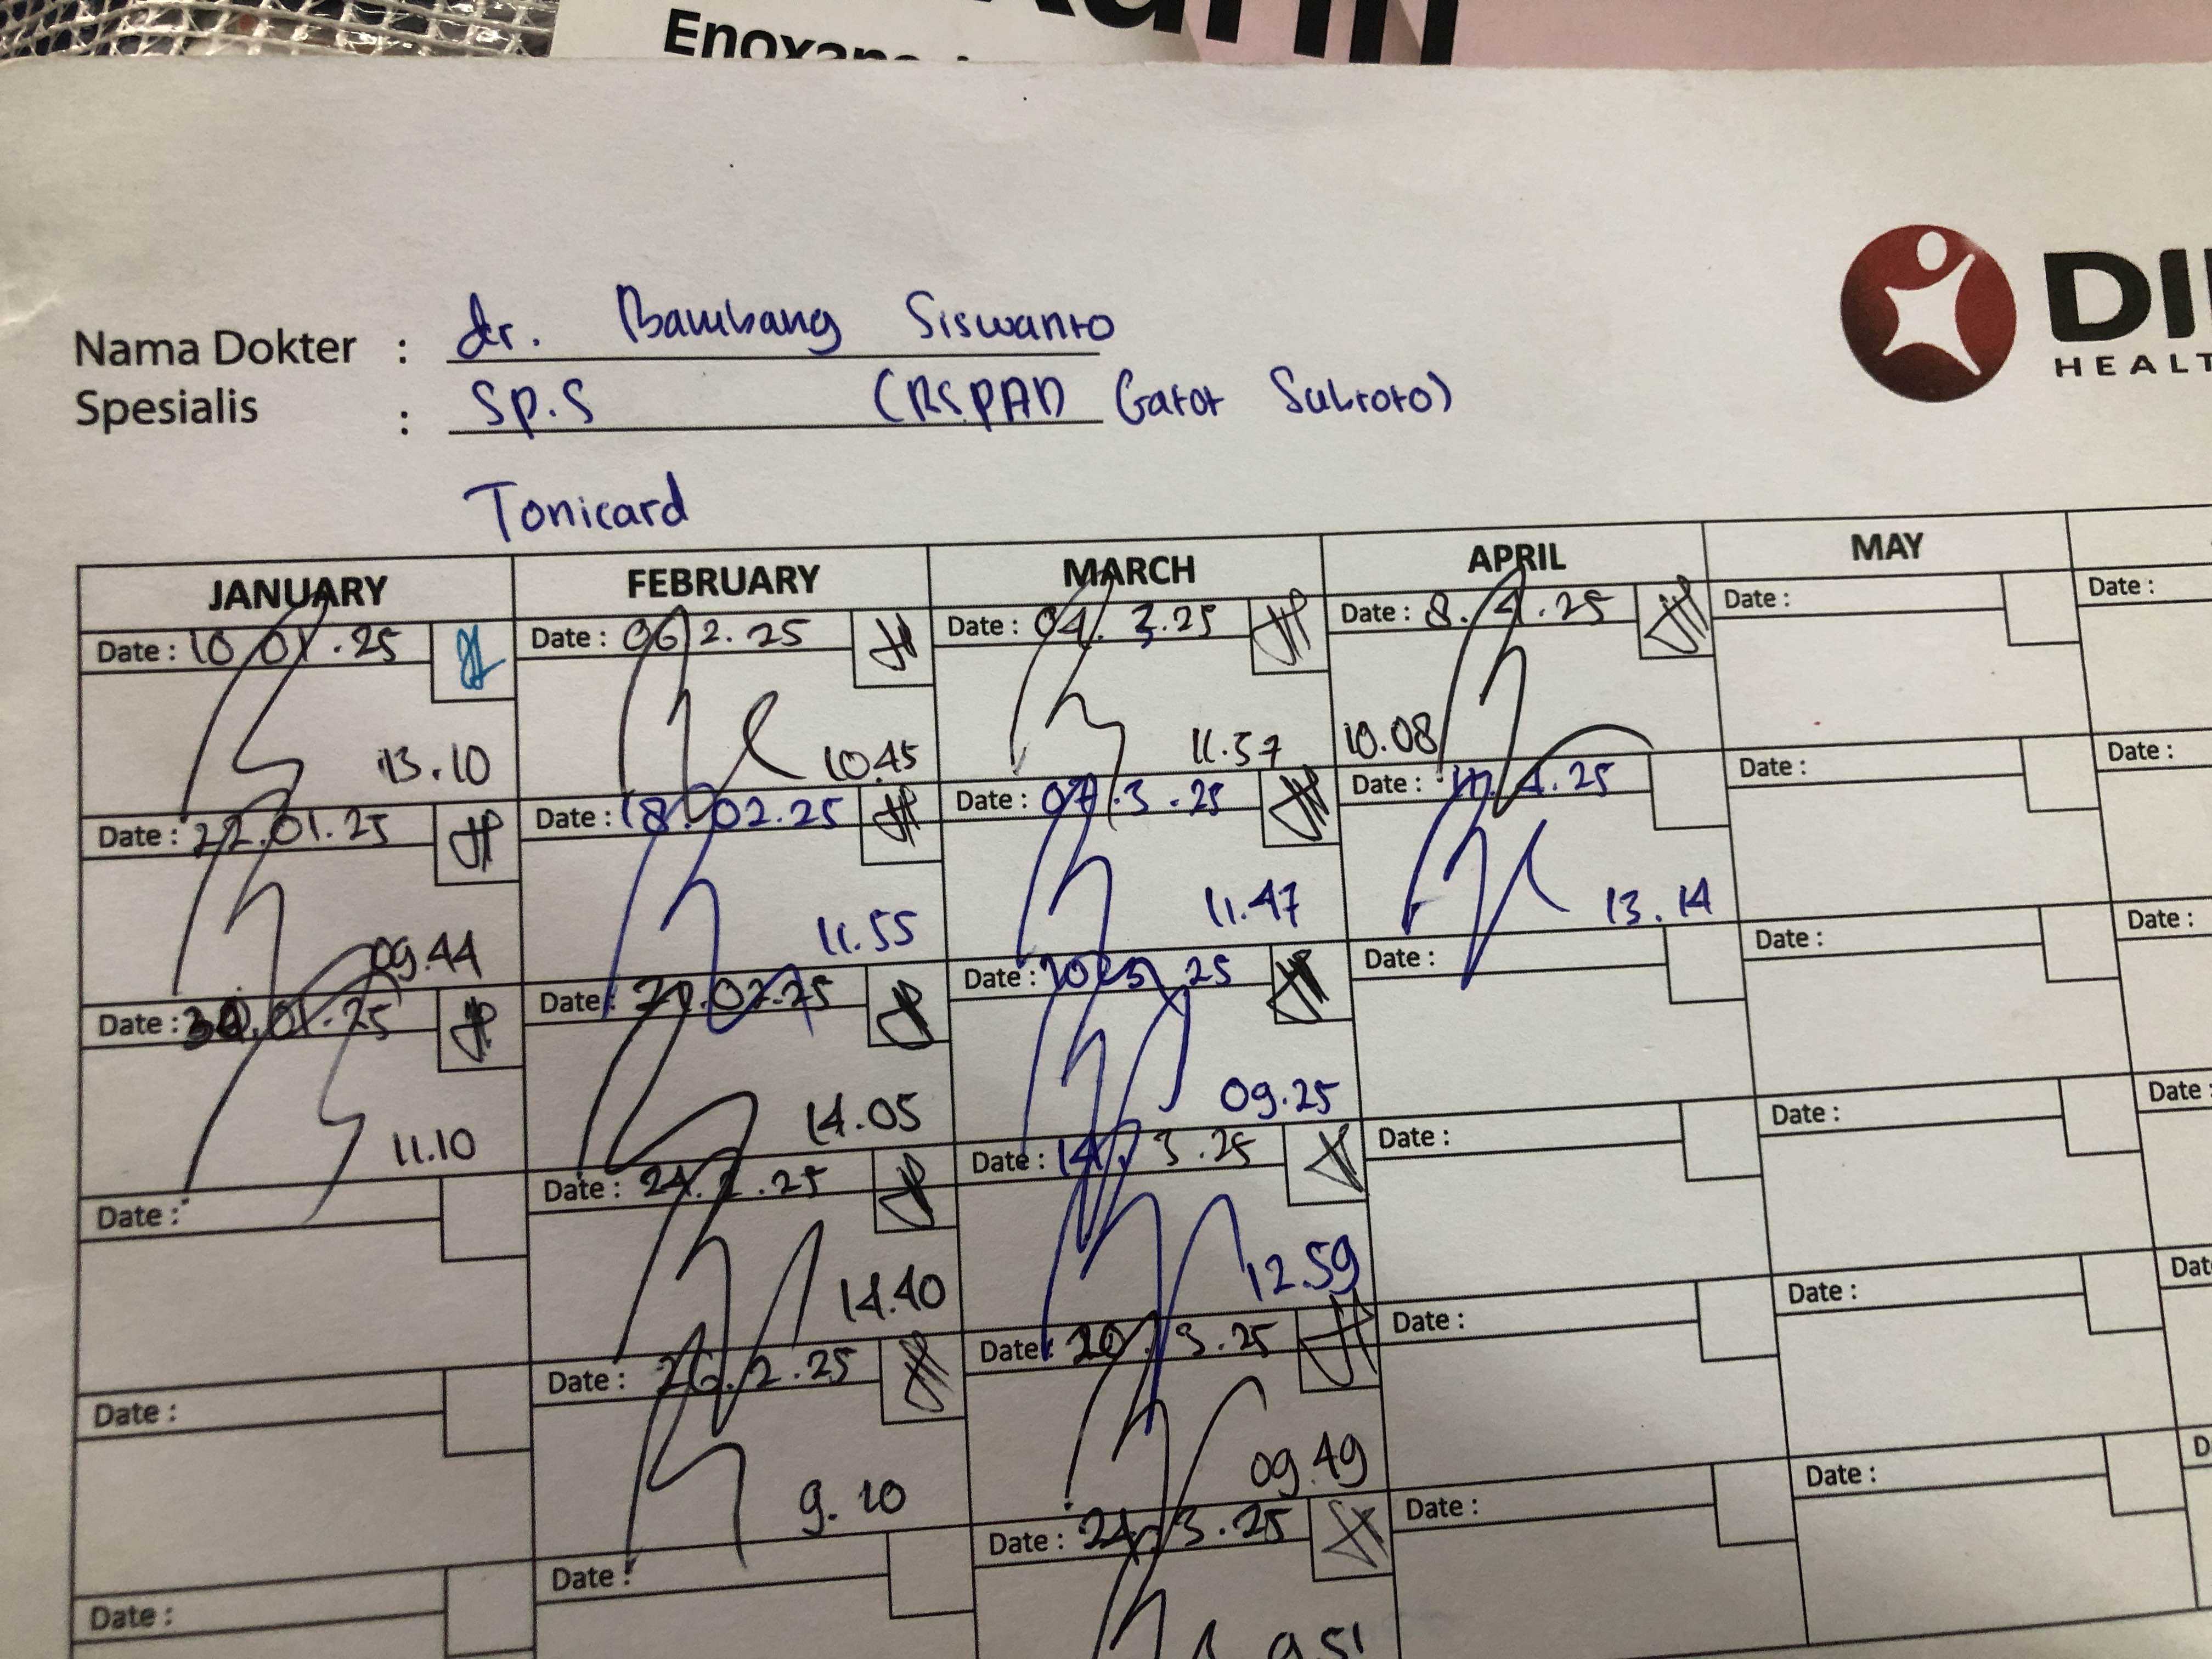 Enoxapa
Nama Dokter : dr. Bambang Siswanto
Spesialis : Sp.S (RSPAD Gatot Subroto)
DI
HEALT
Tonicard
JANUARY FEBRUARY MARCH APRIL MAY
Date : 10 01.25 Date : 06 2.25 Date : 04. 3.25 Date : 8.4.25 Date : Date :
13.10 10.45 11.57 10.08
Date : 22.01.25 Date : 18.02.25 Date : 07.3.25 Date : 4.25 Date : Date :
09.44 11.55 11.47 13.14
Date : 30.01.25 Date : 02.25 Date : 25 Date : Date : Date :
11.10 14.05 09.25
Date : Date : 24.2.25 Date : 14. 3.25 Date : Date : Date :
14.40 12.59
Date : Date : 26.2.25 Date : 20.3.25 Date : Date : Dat
9.10 09.49
Date : Date : Date : 24.3.25 Date : Date : D
9.51